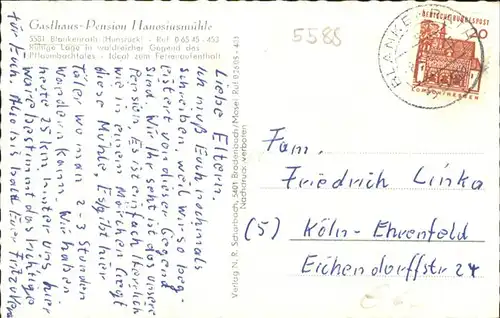 Gasthaus-Pension Hanosiusmühle
5581 Blankenrath (Hunsrück) · Ruf 0 65 45 - 453
Ruhige Lage in waldreicher Gegend des
Flaumbachtales - Ideal zum Ferienaufenthalt
5588
DEUTSCHE BUNDESPOST
20
LORSCH/HESSEN
BLANKENRATH
Liebe Eltern!
Ich muß Euch nochmals
schreiben, weil wir so beg-
eistert von dieser Gegend
sind. Wir
Pension. Es ist einfach herrlich
wie in einem Märchen liegt
diese Mühle. Es gibt hier
Täler wo man 2-3 Stunden
wandern kann. Wir haben
heute 25 km hinter uns. hier
wäre bestimmt das richtige
für Euch. Also bis bald Euer
Verlag N. R. Scharbach, 5401 Brodenbach/Mosel Ruf 02605 - 431
Nachdruck verboten
Fam.
Friedrich Linka
(5) Köln-Ehrenfeld
Eichendorffstr 24